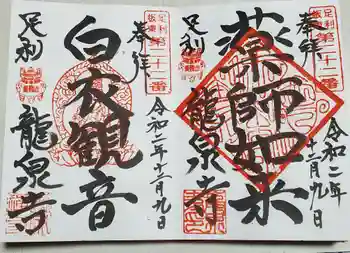 奉拝
足利坂東第二十二番
薬師如来
令和二年
十二月九日
足利
龍泉寺
奉拝
足利坂東第二十一番
白衣観音
令和二年十二月九日
足利
龍泉寺